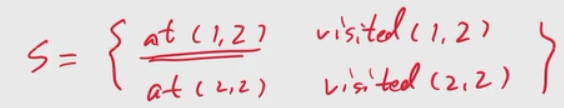 S = { at (1,2) visited (1,2)
at (2,2) visited (2,2) }